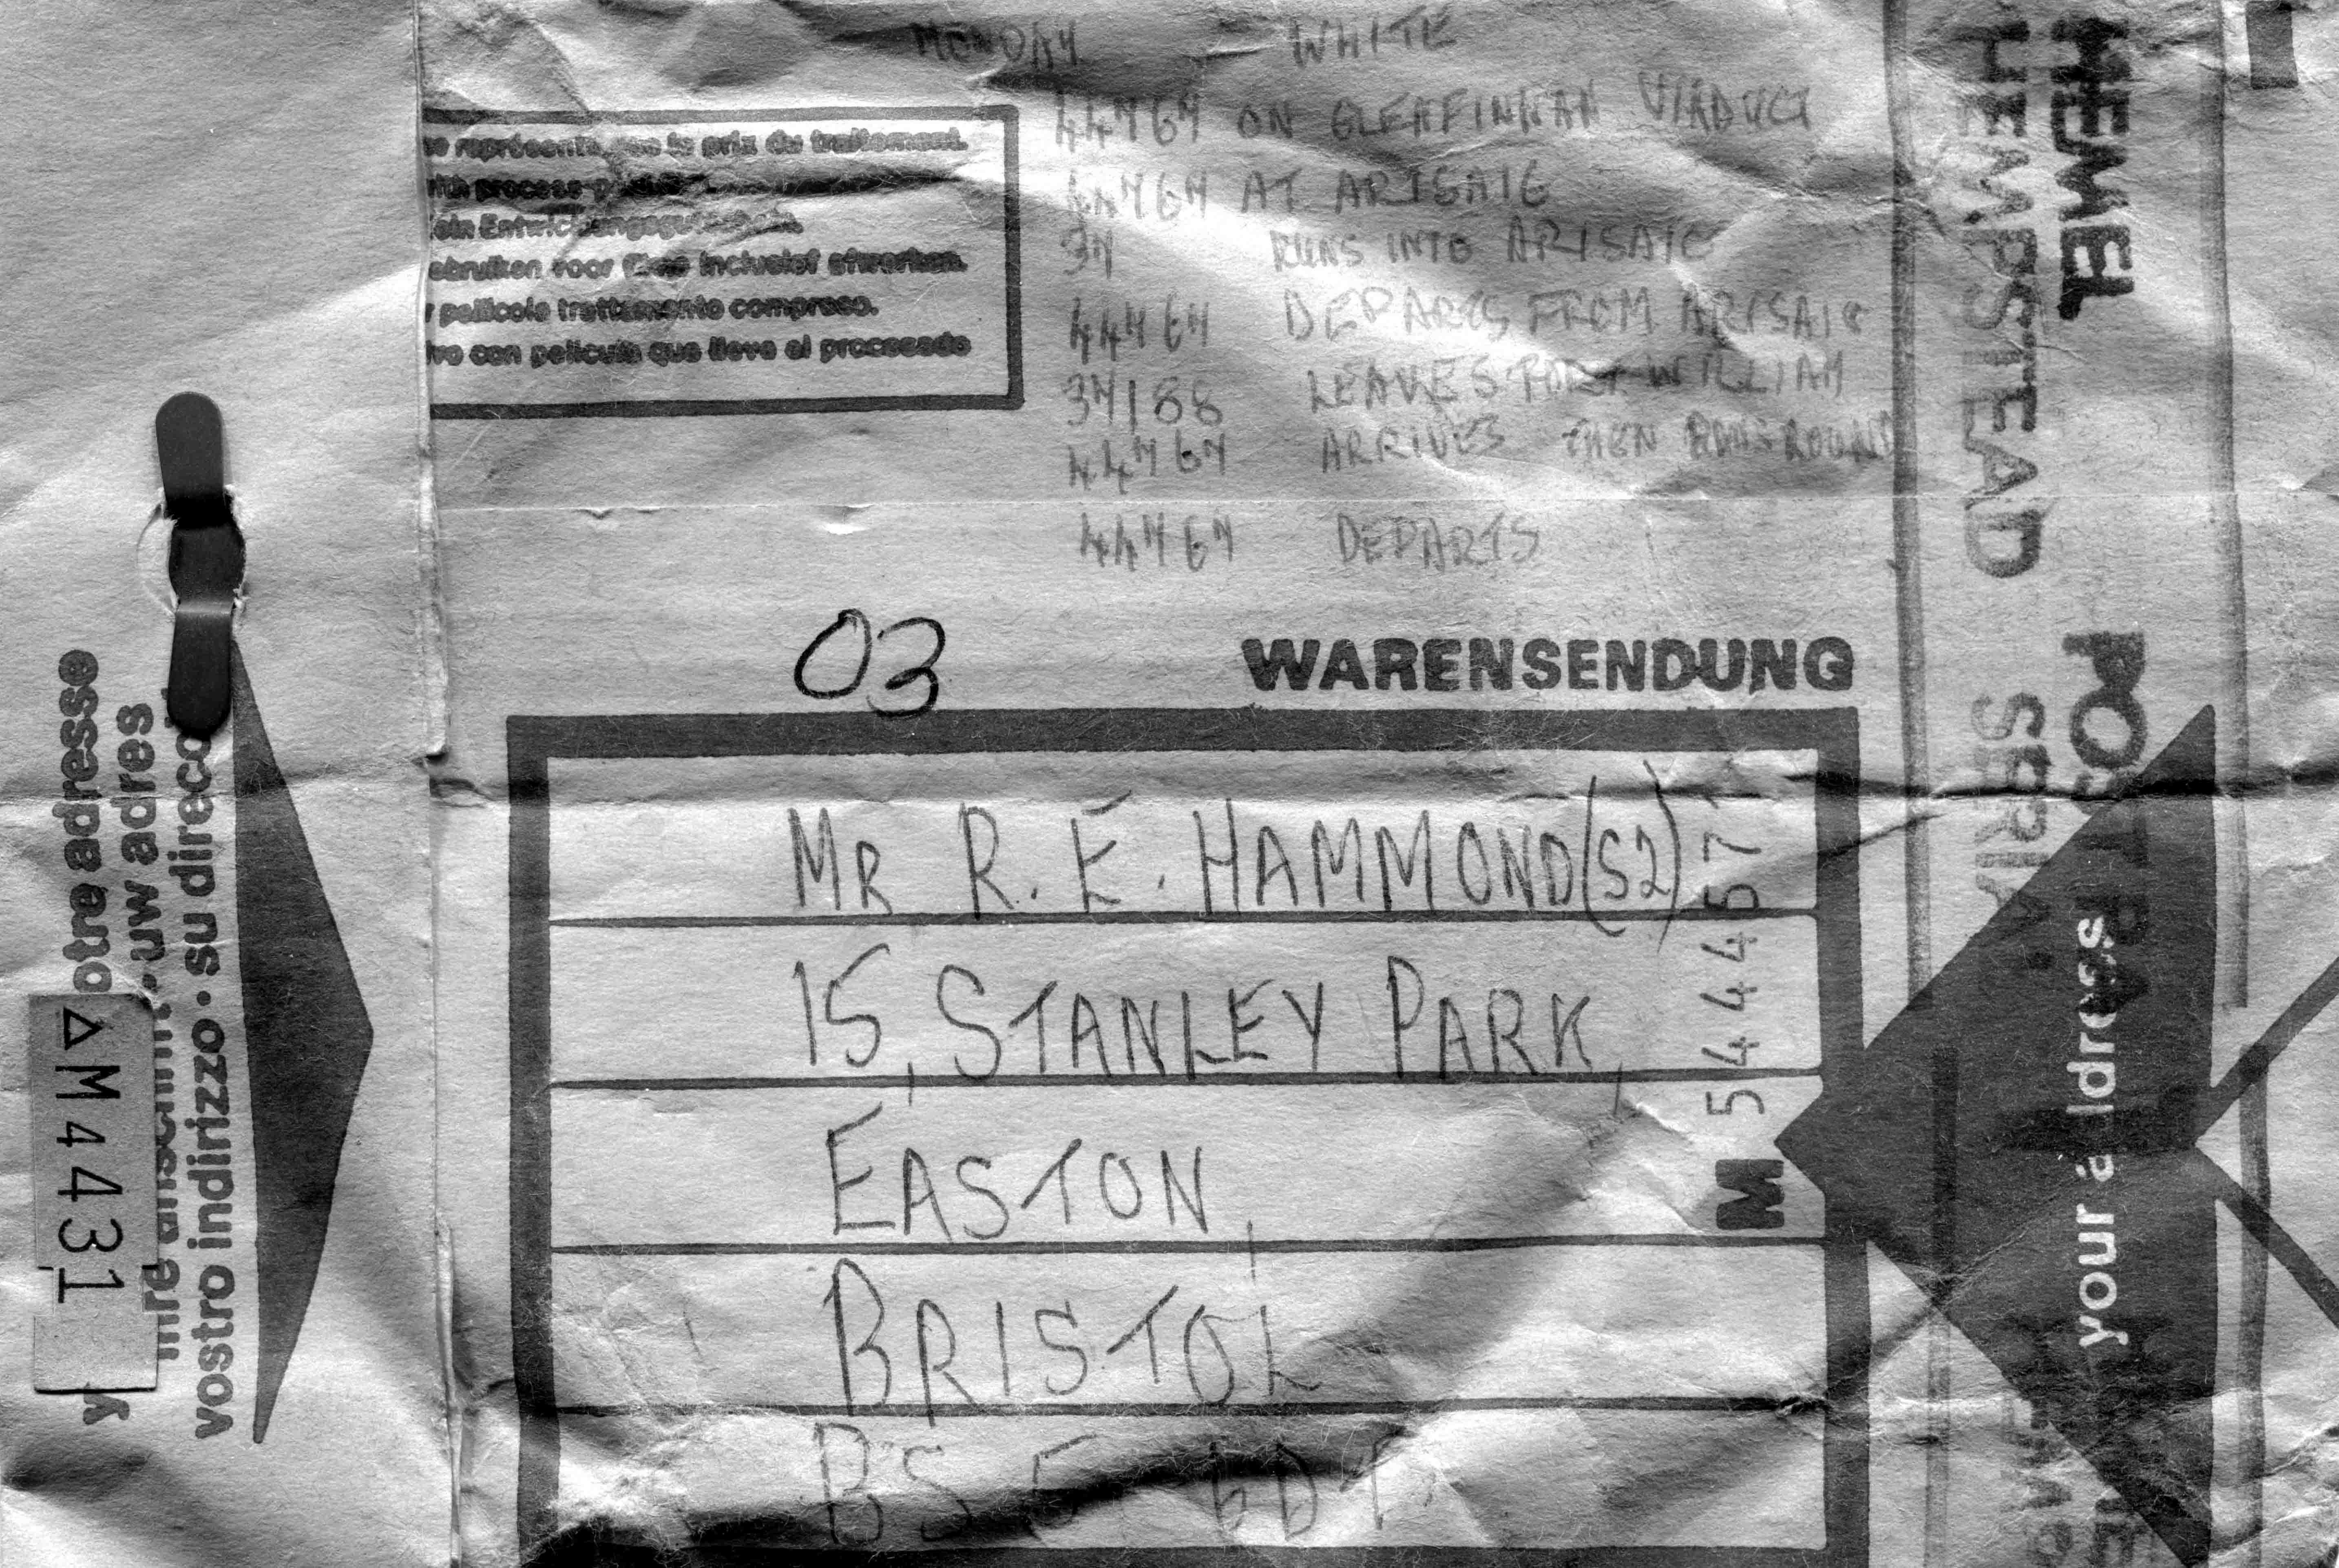 MONDAY - WHITE
44767 ON GLENFINNAN VIADUCT
44767 AT ARISAIG
37 RUNS INTO ARISAIG
44767 DEPARTS FROM ARISAIG
37188 LEAVES FORT WILLIAM
44767 ARRIVES THEN RUNS ROUND
44767 DEPARTS
représente que le prix du traitement.
with process-p
ein Entwicklungs
ebruiken voor films inclusief afwerken.
pellicole trattamento compreso.
vo con película que lleve el processado
03
WARENSENDUNG
MR R. E. HAMMOND (S2)
15, STANLEY PARK,
EASTON,
BRISTOL
BS5 6DT.
M 5444457
otre adresse
uw adres
vostro indirizzo • su direcc
ΔM4431
HEMEL
HEMPSTEAD
your address